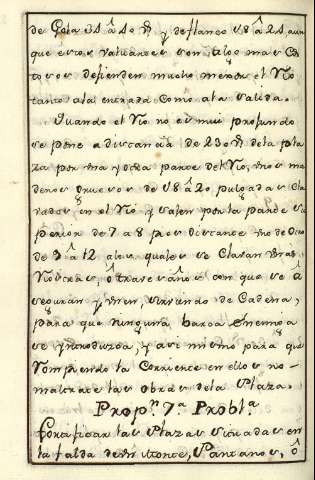 de Gola 35 â 40 y de flanco 18 â 25, aun
que estos valuartes son algo mas
defienden mucho el Rio
tanto ala entrada como ala salida.
Quando el Rio no es mui profundo
se pone a distancia de 230 dela pla
za por una y otra parte del Rio, unos ma
deros gruesos de 18 â 20 pulgadas cla
vados en el Rio y salen por la parte su
perior de 7 a 8 pies distante uno de otro
de â 12 alos quales se clavan otras
ô trabesaños con que se â
seguran y unen, sirviendo de Cadena,
para que ninguna barca Enemiga
se yntroduzca, y asi mismo para que
Rompiendo la Corriente en ellos no
maltrate las obras dela Plaza.
Prop.n 7.a Probl.a
Fortificar las Plazas situadas en
la falda de un Monte, Pantanos, ô